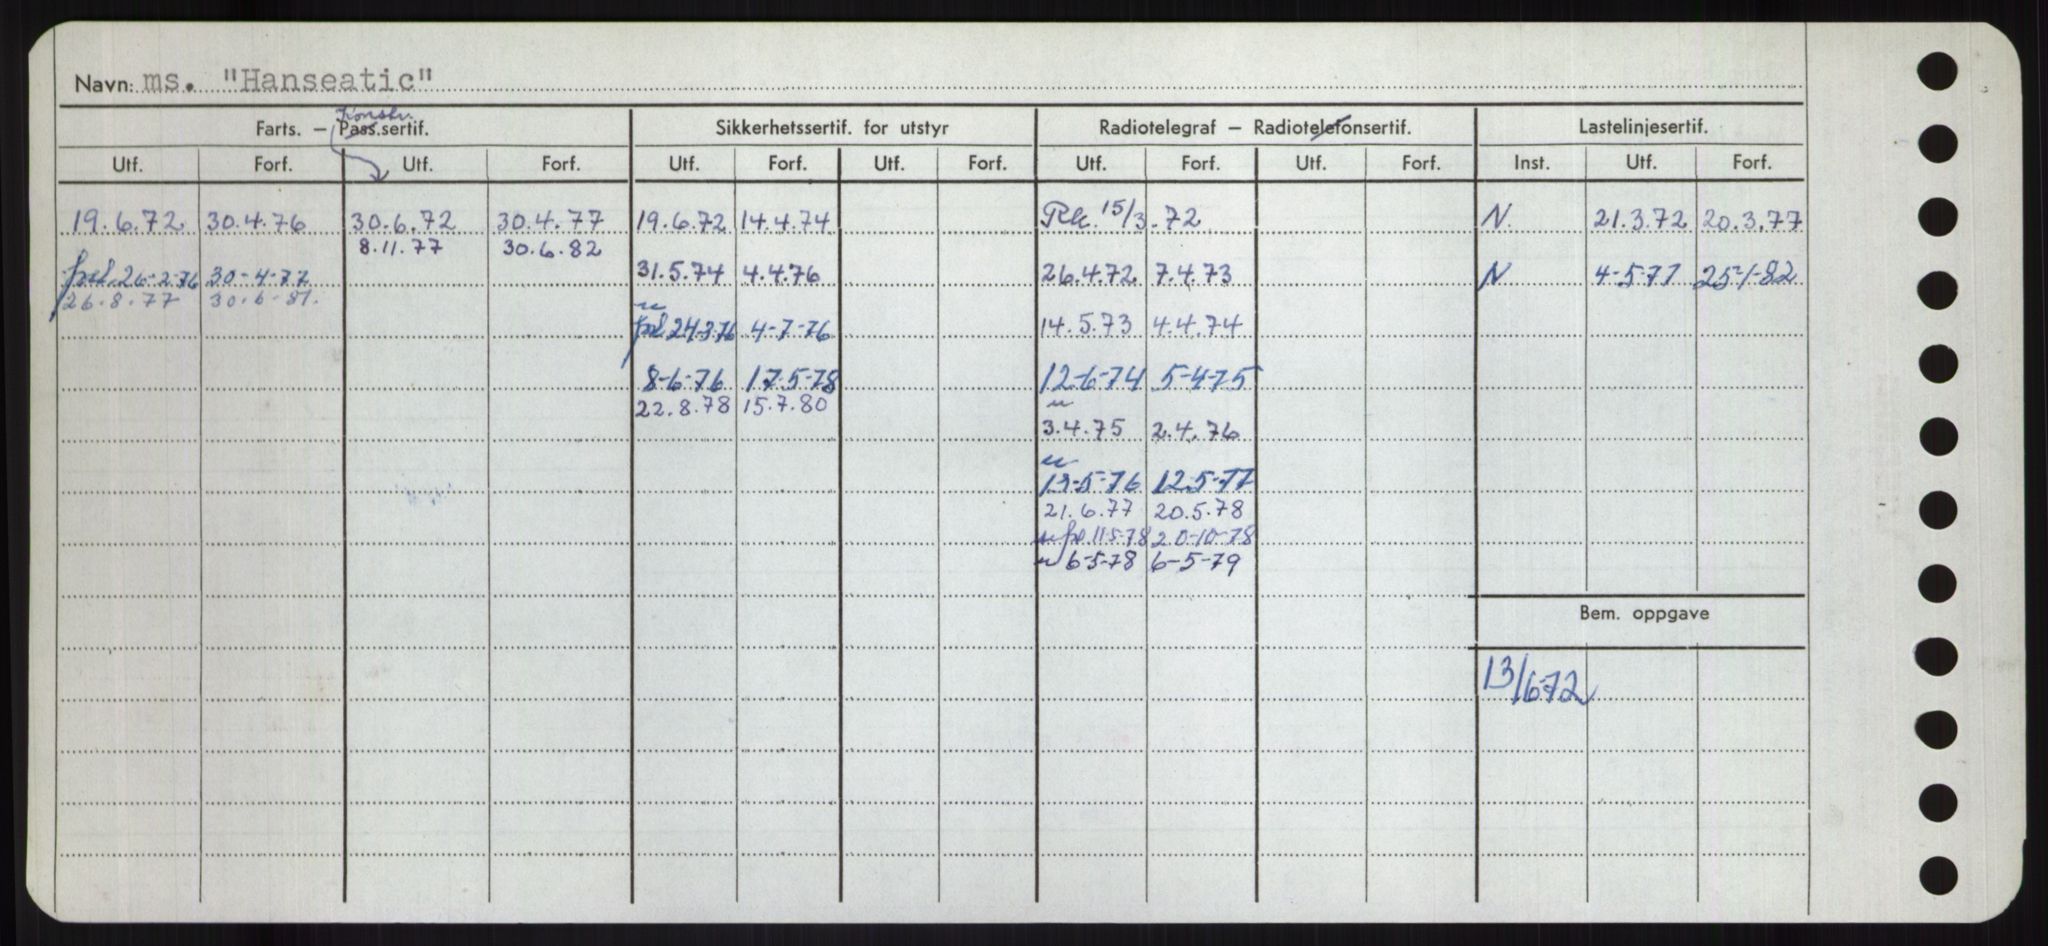 Navn: ms. "Hanseatic"
Konstr.
Farts. — Pass.sertif. Sikkerhetssertif. for utstyr Radiotelegraf — Radiotelefonsertif. Lastelinjesertif.
Utf. Forf. Utf. Forf. Utf. Forf. Utf. Forf. Utf. Forf. Utf. Forf. Inst. Utf. Forf.
19.6.72 30.4.76 30.6.72 30.4.77 19.6.72 14.4.74 Rk. 15/3.72 N. 21.3.72 20.3.77
8.11.77 30.6.82
26-2-76 30-4-77 31.5.74 4.4.76 26.4.72 7.4.73 N 4-5-77 25-1-82
26.8.77 30-6-81.
24-3-76 4-7-76 14.5.73 4.4.74
8-6-76 17-5-78 12-6-74 5-4-75
22.8.78 15.7.80
3.4.75 2.4.76
13-5-76 12-5-77
21.6.77 20.5.78
11-5-78 20-10-78
6-5-78 6-5-79
Bem. oppgave
13/6-72